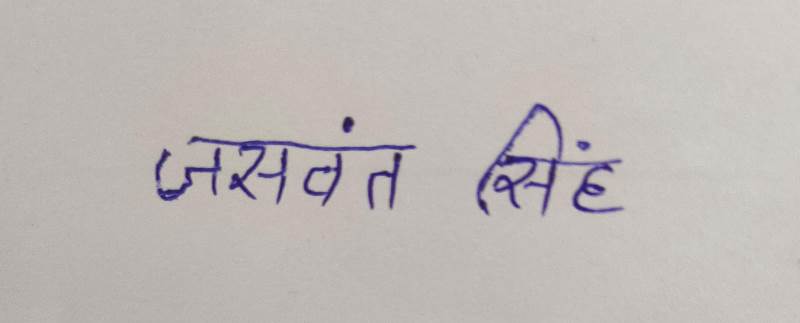 जसवंत सिंह